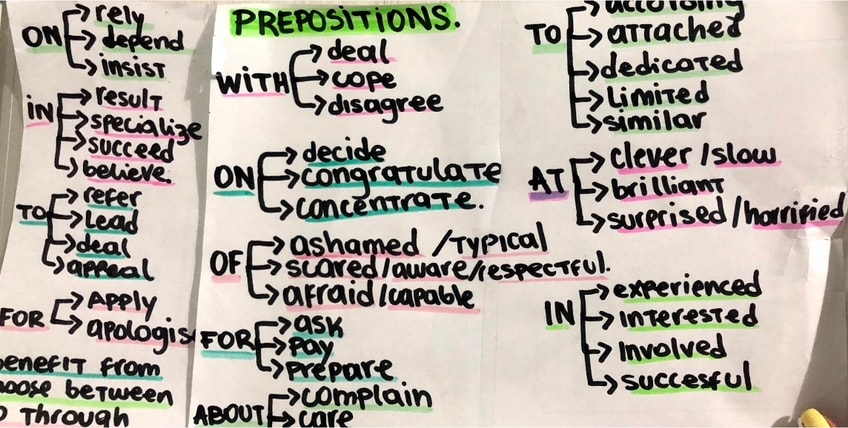 ON → rely
→ depend
→ insist
IN → result
→ specialize
→ succeed
→ believe
TO → refer
→ Lead
→ deal
→ appeal
FOR → Apply
→ apologis
Benefit from
between
Through
PREPOSITIONS.
WITH → deal
→ cope
→ disagree
ON → decide
→ congratulate
→ concentrate.
OF → ashamed / typical
→ scared / aware / respectful.
→ afraid / capable
FOR → ask
→ pay
→ prepare
ABOUT → complain
→ care
TO → according
→ attached
→ dedicated
→ Limited
→ similar
AT → clever / slow
→ brilliant
→ surprised / horrified
IN → experienced
→ interested
→ Involved
→ succesful